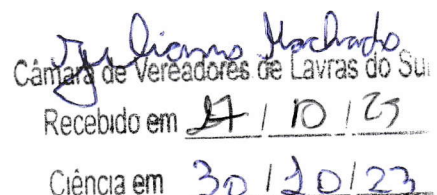 Juliano Machado
Câmara de Vereadores de Lavras do Sul
Recebido em 27 / 10 / 23
Ciência em 30 / 10 / 23